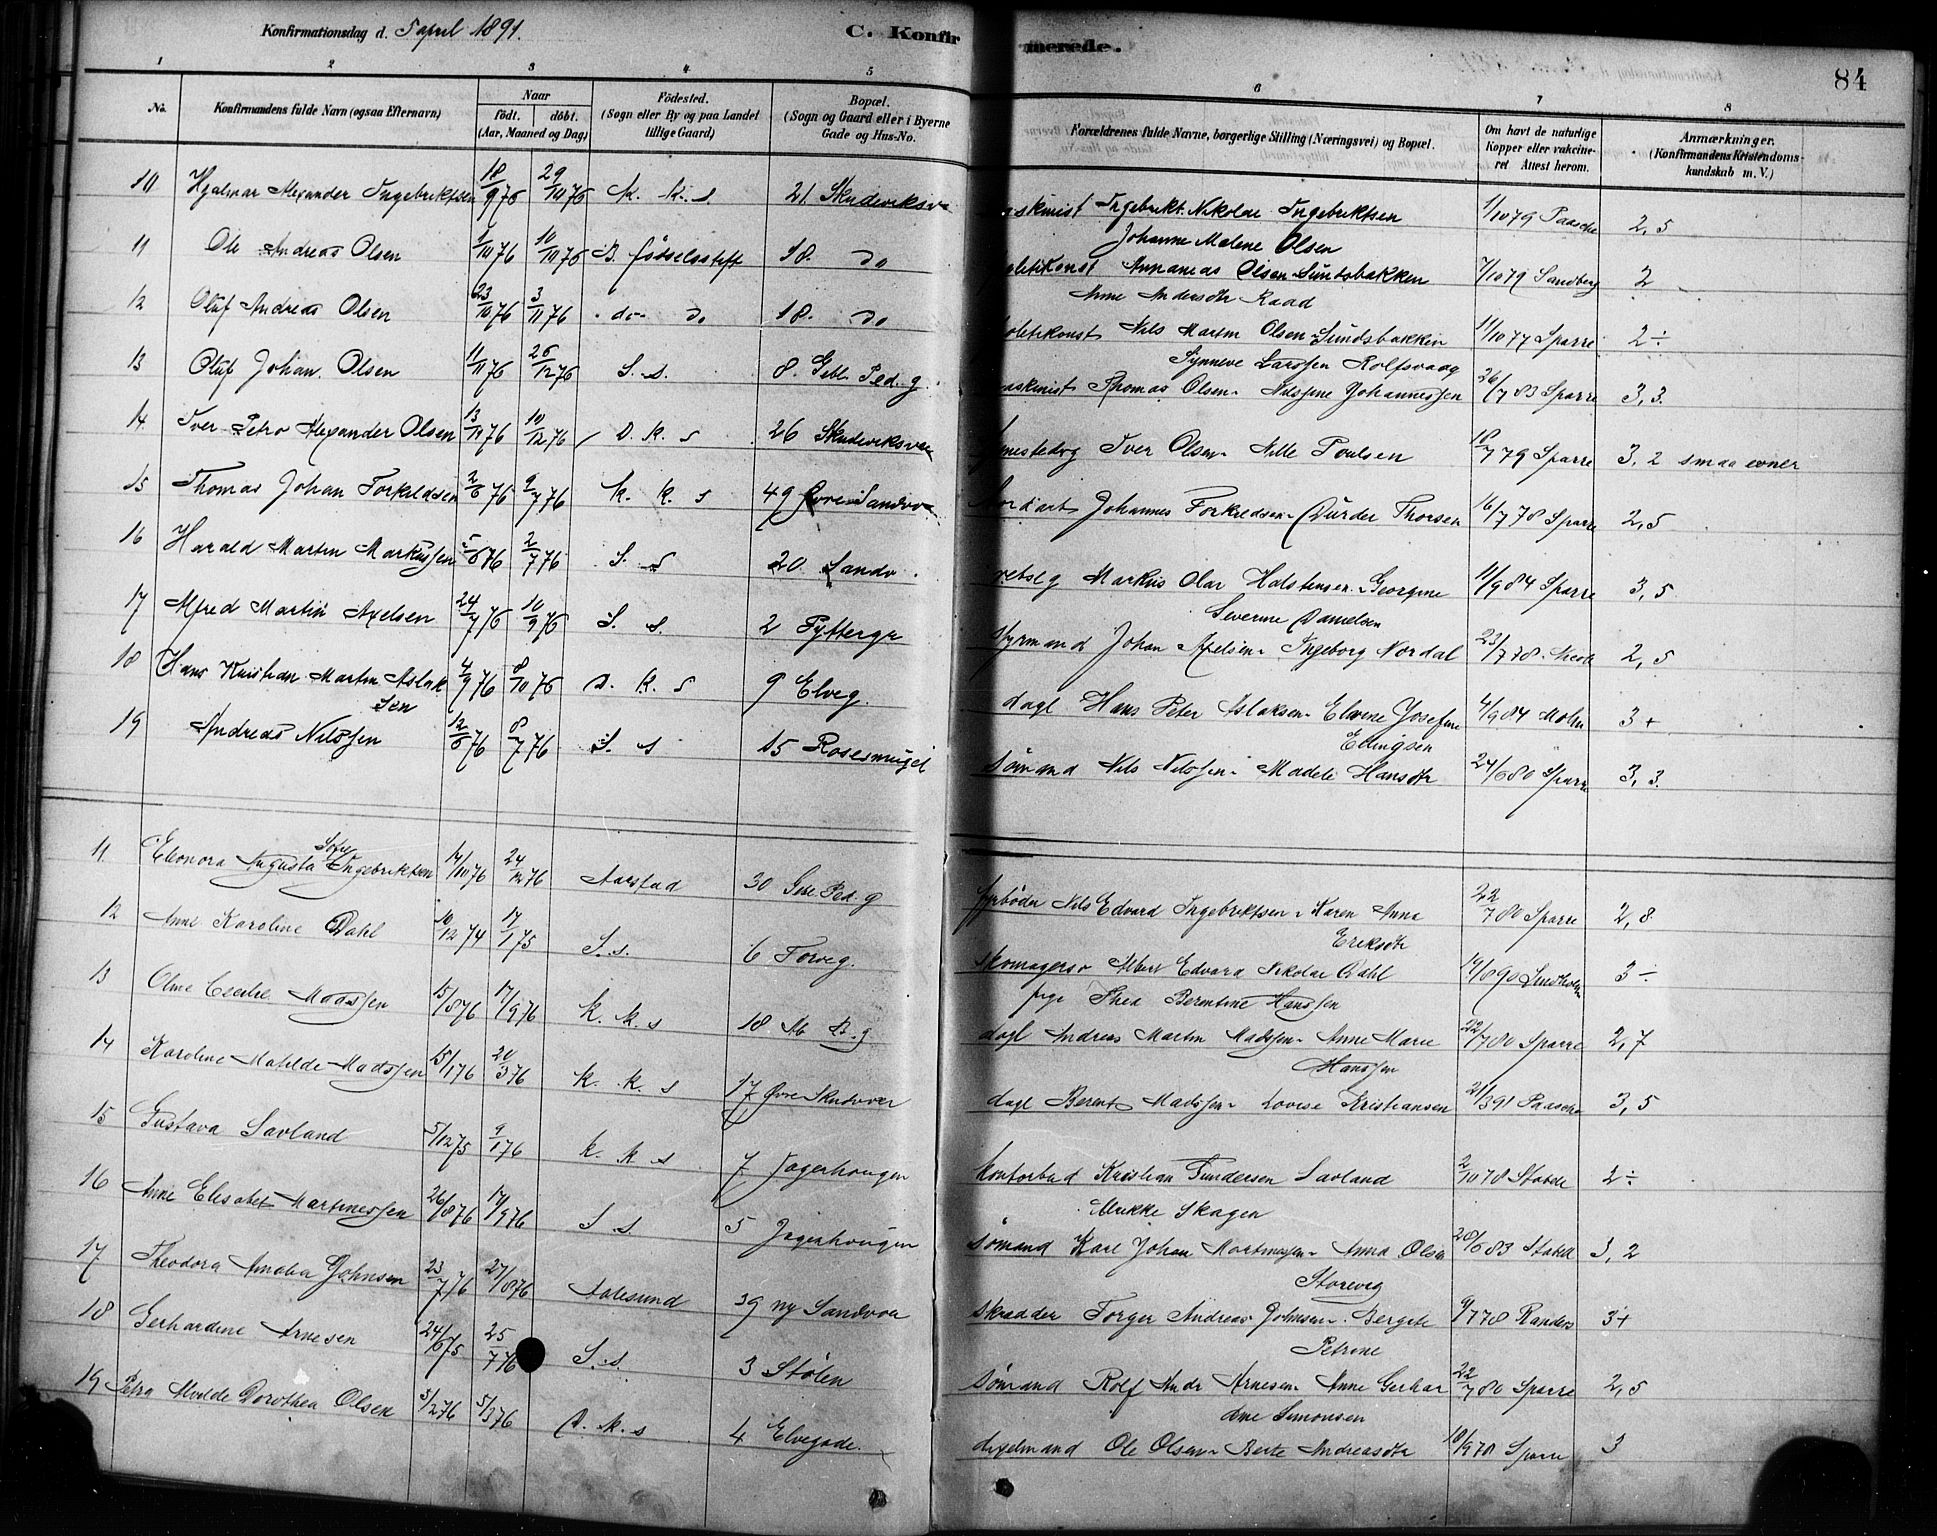 Konfirmationsdag d. 5 april 1891.
C. Konfirmerede.
84
1 2 3 4 5 6 7 8
No. Konfirmandens fulde Navn (ogsaa Efternavn) Naar født. døbt. (Aar, Maaned og Dag) Fødested. (Sogn eller By og paa Landet tillige Gaard) Bopæl. (Sogn og Gaard eller i Byerne Gade og Hus-No. Forældrenes fulde Navne, borgerlige Stilling (Næringsvei) og Bopæl. Om havt de naturlige Kopper eller vakcineret Attest herom. Anmærkninger. (Konfirmandens Kristendomskundskab m. V.)
10 Hjalmar Alexander Ingebriktsen 18/9 76 29/10 76 K. K. s. 21 Skudeviksv Ingebrikt Nikolai Ingebriktsen 1/10 79 Paasche 2,5
Johanne Malene Olsen
11 Ole Andreas Olsen 1/10 76 10/10 76 B. fødselsstift 18. do Annanias Olsen Sundsbakken 7/10 79 Sandberg 2
Anne Andersdtr Raad
12 Oluf Andreas Olsen 23/10 76 3/11 76 do do 18. do Nils Martin Olsen Sundsbakken 11/10 77 Sparre 2 ÷
Synneve Larssen Rolfsvaag
13 Oluf Johan Olsen 11/11 76 26/12 76 S. s. 8. Gebl. Ped. g. Thomas Olsen - Nilsine Johannessen 26/7 83 Sparre 3,3.
14 Iver Petro Alexander Olsen 13/11 76 10/12 76 D. K. s 26 Skudeviksvei Iver Olsen - Nille Poulsen 18/7 79 Sparre 3,2 smaa evner
15 Thomas Johan Torkildsen 2/6 76 9/7 76 K. K. s 49 Øvre Sandv Johannes Torkildsen - Durdei Thorsen 16/7 78 Sparre 2,5
16 Harald Martin Markussen 5/6 76 2/7 76 S. s 20 Sandv. Markus Olai Halstensen - Georgine 11/9 84 Sparre 3,5
Severine Danielsen
17 Alfred Martin Axelsen 24/7 76 10/9 76 S. s. 2 Pyttergr styrmand Johan Axelsen - Ingeborg Nordal 23/7 78 2,5
18 Hans Kristian Martin Aslak 4/9 76 8/10 76 D. K. s 9 Elveg. dagl Hans Peter Aslaksen - Elvine Josefine 4/9 84 Mohn 3+
sen Ellingsen
19 Andreas Nilssen 12/6 76 8/7 76 S. s 15 Rosesmuget sømand Nils Nilssen - Madele Hansdtr 24/6 80 Sparre 3,3.
11 Eleonora Augusta Sofie Ingebriktsen 14/10 76 24/12 76 Aarstad 30 Gebl. Ped. g fyrbøder Nils Edvard Ingebriktsen - Karen Anna 22/7 80 Sparre 2,8
Eriksdtr
12 Anne Karoline Dahl 10/12 74 17/1 75 S. s. 6 Torveg. skomagersv Albert Edvard Nikolai Dahl 19/8 90 Lindholm 3 ÷
pige Thea Berentine Hanssen
13 Oline Cecilie Madssen 15/8 76 17/9 76 K. K. s 18 dagl Andreas Martin Madssen - Anne Marie 22/7 80 Sparre 2,7
Hanssen
14 Karoline Matilde Madssen 15/1 76 20/3 76 K. K. s 17 Øvre Skudevei dagl Berent Madssen - Lovise Kristiansen 21/3 91 Paasche 3,5
15 Gustava Savland 5/12 75 9/1 76 K. K. s 7 Jægerhougen kontorbud Kristian Gundersen Savland 2/10 78 Stabell 2 ÷
Ulrikke Skagen
16 Anne Elisabet Martinessen 26/8 76 17/9 76 S. s. 5 Jægerhougen sømand Karl Johan Martinessen - Anna Olsen 20/6 83 Stabell 3,2
Storeveg
17 Theodora Amalia Johnsen 23/7 76 27/8 76 Aalesund 39 ny Sandvei skrædder Torger Andreas Johnsen - Bergete 9/7 78 Randers 3+
Petrine
18 Gerhardine Arnesen 24/6 75 25/7 76 S. s. 3 Stølen sømand Rolf Andr Arnesen - Anne Gerhar 22/7 80 Sparre 2,5
dine Simonsen
19 Petra Alvilde Dorothea Olsen 3/2 76 5/3 76 D. K. s 4 Elvegade. Ole Olsen - Berte Andreasdtr 18/9 78 Sparre 3